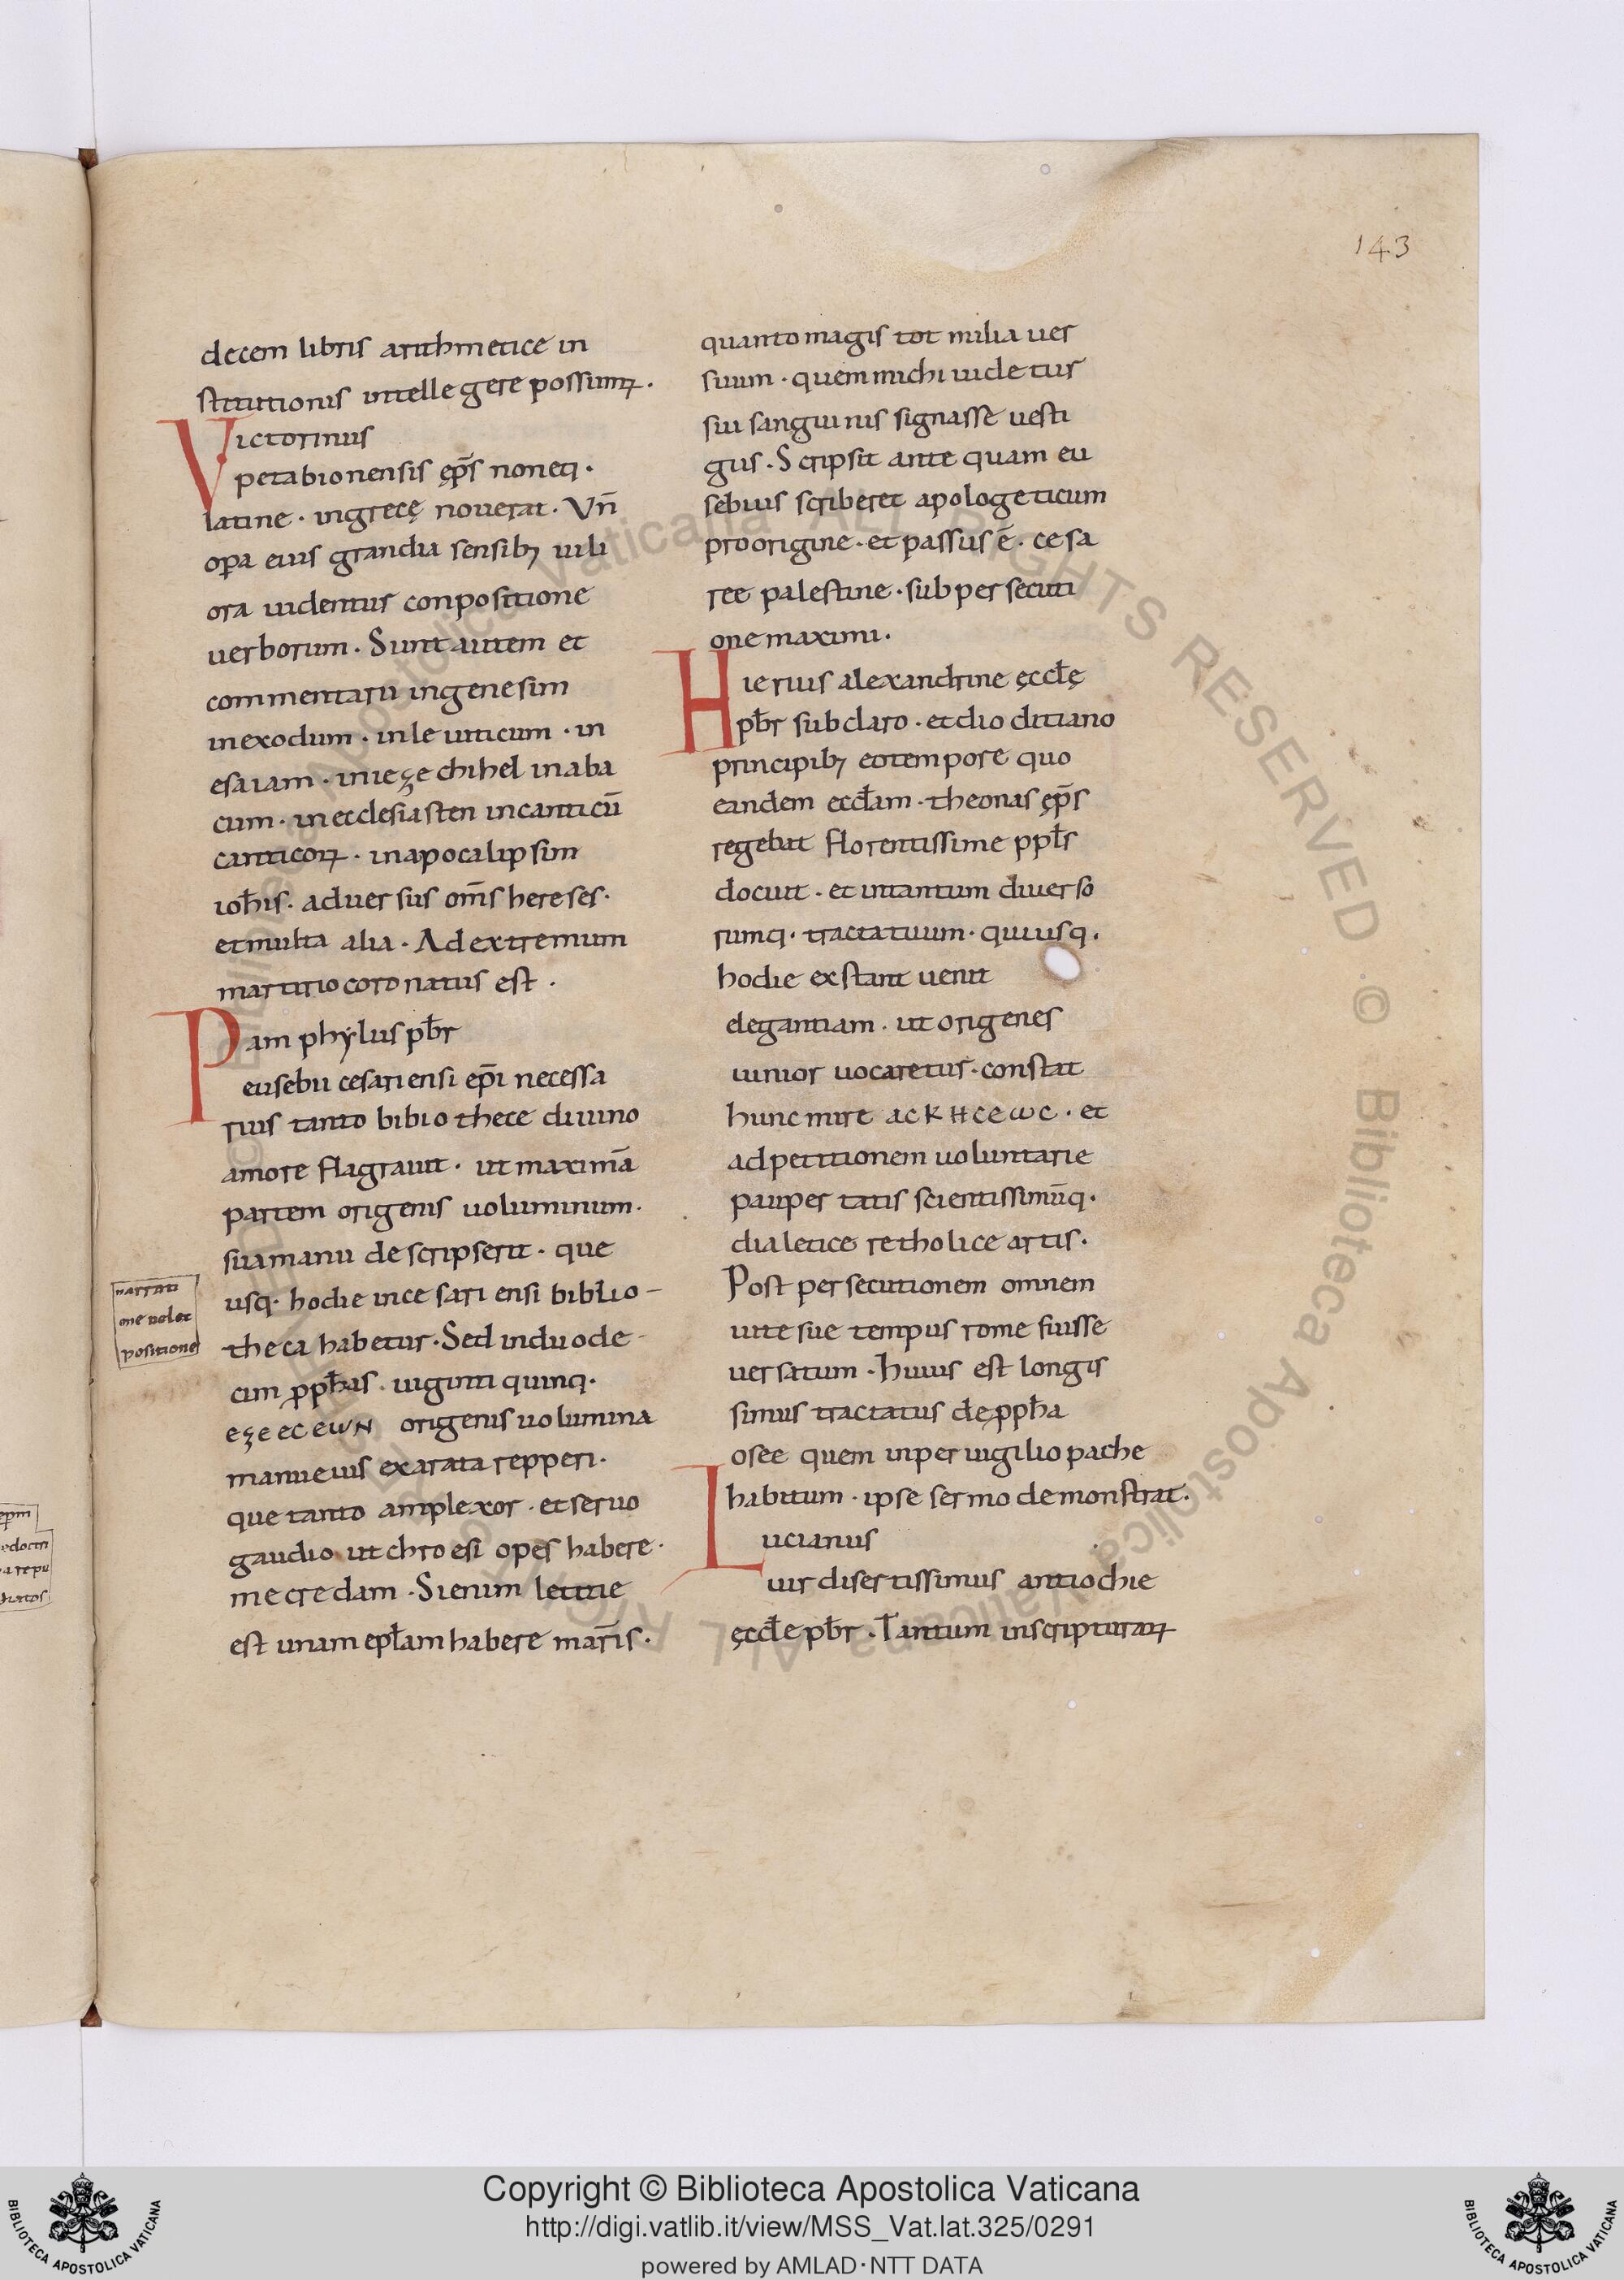 143
decem libris arithmetice in
stitutionis intellegere possumꝝ.
Victorinus
petabionensis ęp̄s noneq·
latine· ingrecę nouerat· Vn̄
op̄a eius grandia sensibꝫ uili
ora uidentur conpositione
uerborum· Sunt autem et
commentarii ingenesim
inexodum· inleuiticum· in
esaiam· iniezechihel inaba
cum· inecclesiasten incanticū
canticoꝝ· inapocalipsim
ioh̄is· aduersus om̄s hereses·
etmulta alia· Adextremum
martirio coronatus est·
Pamphẏlus pb̄r
eusebii cesariensi ep̄i necessa
rius tanto bibiothece diuino
amore flagrauit· ut maximā
partem origenis uoluminum·
suamanu descripserit· que
usq· hodie incesariensi biblio-
theca habetur· Sed induode-
cim ꝓph̄as· uiginti quinq·
eze ec ewN origenis uolumina
manueius exarata repperi·
que tanto amplexor· et seruo
gaudio ut chroesi opes habere·
me credam· Sienim letitie
est unam epl̄am habere mar̄is·
narrati
one uel et
positione
quanto magis tot milia uer
suum· quem michi uidetur
sui sanguinis signasse uesti
gus· Scripsit ante quam eu
sebius scriberet apologeticum
pro origine· et passus ē· cesa
ree palestine· sub persecuti
one maximi·
Hierius alexandrine ęccl̄ę
pb̄r sub claro· et dioditiano
principibꝫ eotempore quo
eandem eccl̄am· theonas ęp̄s
regebat florentissime ppl̄s
docuit· et intantum diuerso
rumq· tractatuum· quiusq·
hodie exstant uenit
elegantiam· ut origenes
iunior uocaretur· constat
hunc mire ACKHCEωC· et
adpetitionem uoluntarie
paupertatis scientissimūq·
dialetice retholice artis·
Post persecutionem omnem
uite sue tempus rome fuisse
uersatum· Huius est longis
simus tractatus de ꝓph̄a
osee quem inperuigilio pache
habitum· ipse sermo demonstrat·
Lucianus
uir disertissimus antiochie
ęccl̄e pb̄r· Tantum inscripturaꝝ
Copyright © Biblioteca Apostolica Vaticana
http://digi.vatlib.it/view/MSS_Vat.lat.325/0291
powered by AMLAD·NTT DATA